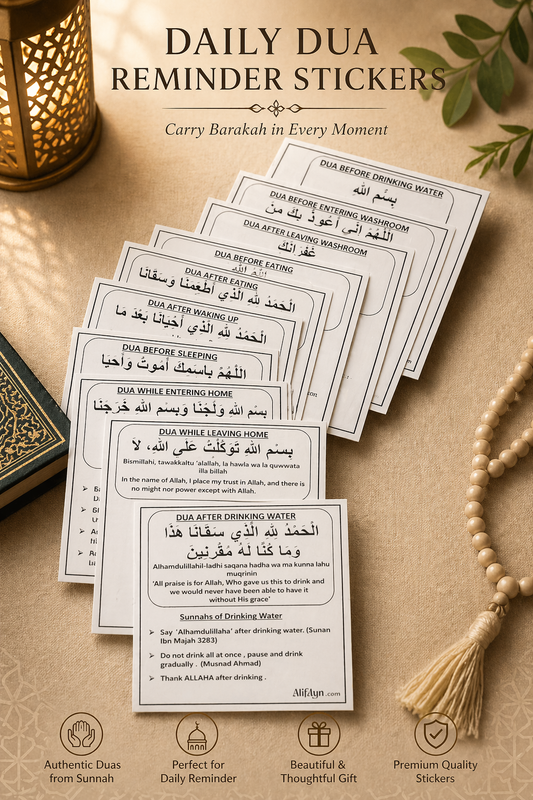 DAILY DUA
REMINDER STICKERS
Carry Barakah in Every Moment
DUA BEFORE DRINKING WATER
بِسْمِ اللهِ
DUA BEFORE ENTERING WASHROOM
اللَّهُمَّ اِنِّي أَعُوذُ بِكَ مِنَ
DUA AFTER LEAVING WASHROOM
غُفْرَانَكَ
DUA BEFORE EATING
DUA AFTER EATING
الْحَمْدُ لِلهِ الَّذِي أَطْعَمَنَا وَسَقَانَا
DUA AFTER WAKING UP
الْحَمْدُ لِلهِ الَّذِي أَحْيَانَا بَعْدَ مَا
DUA BEFORE SLEEPING
اللَّهُمَّ بِاسْمِكَ أَمُوتُ وَأَحْيَا
DUA WHILE ENTERING HOME
بِسْمِ اللهِ وَلَجْنَا وَبِسْمِ اللهِ خَرَجْنَا
DUA WHILE LEAVING HOME
بِسْمِ اللهِ تَوَكَّلْتُ عَلَى اللهِ، لاَ
Bismillahi, tawakkaltu 'alallah, la hawla wa la quwwata
illa billah
In the name of Allah, I place my trust in Allah, and there is
no might nor power except with Allah.
DUA AFTER DRINKING WATER
الْحَمْدُ لِلهِ الَّذِي سَقَانَا هَذَا
وَمَا كُنَّا لَهُ مُقْرِنِينَ
Alhamdulillahil-ladhi saqana hadha wa ma kunna lahu
muqrinin
'All praise is for Allah, Who gave us this to drink and
we would never have been able to have it
without His grace'
Sunnahs of Drinking Water
➢ Say 'Alhamdulillaha' after drinking water. (Sunan
Ibn Majah 3283)
➢ Do not drink all at once , pause and drink
gradually . (Musnad Ahmad)
➢ Thank ALLAHA after drinking .
AlifAyn.com
Authentic Duas
from Sunnah
Perfect for
Daily Reminder
Beautiful &
Thoughtful Gift
Premium Quality
Stickers